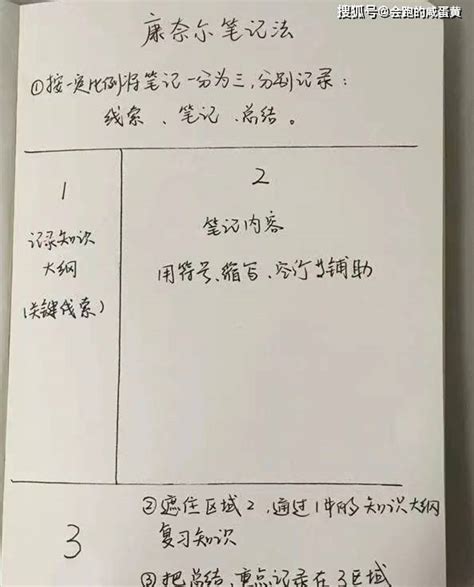 搜狐号@会跑的咸蛋黄
康奈尔笔记法
①按一定比例将笔记一分为三,分别记录:
线索、笔记、总结。
1
记录知识
大纲
(关键线索)
2
笔记内容
用符号、缩写、空行为辅助
3
②遮住区域2,通过1中的知识大纲
复习知识
③把总结、重点记录在3区域